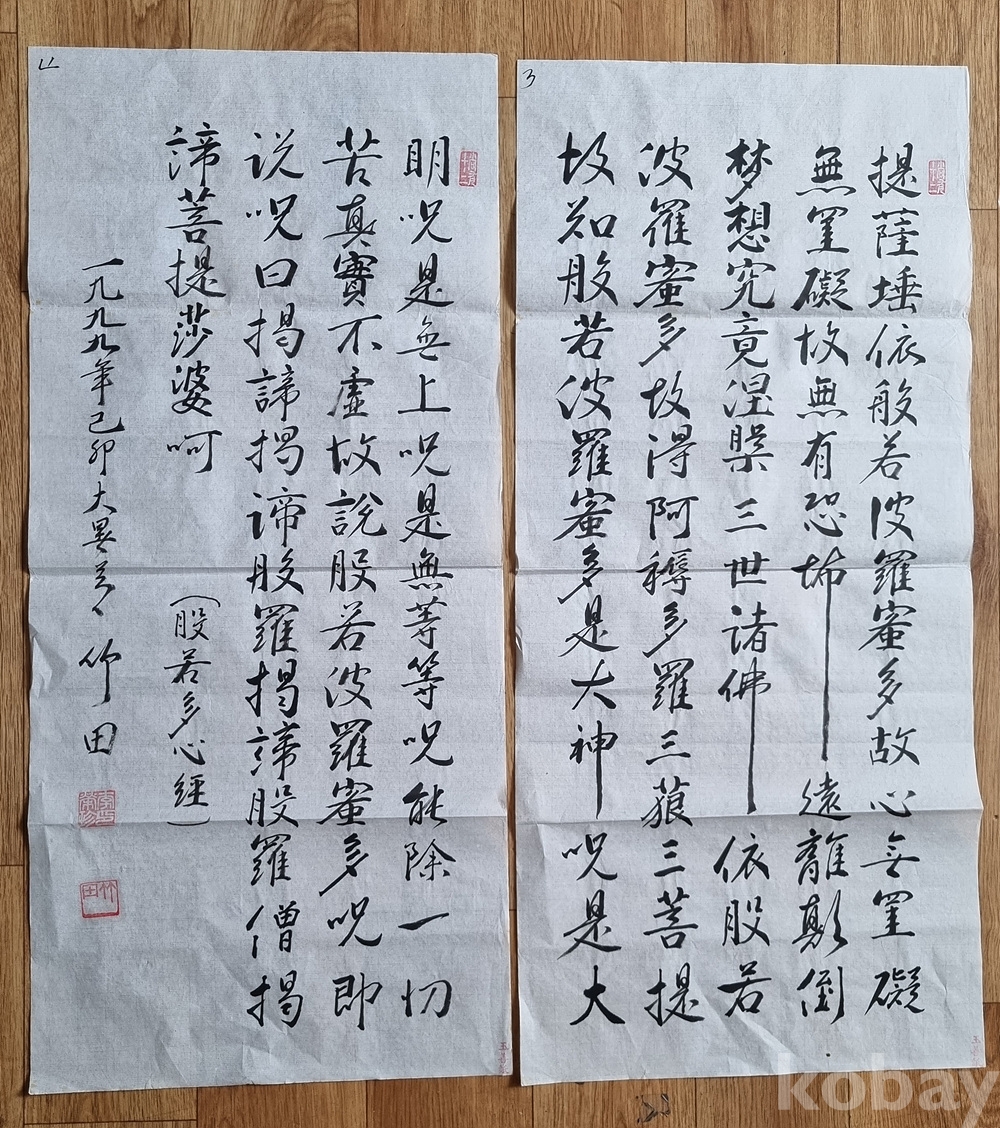 3
提薩埵依般若波羅蜜多故心無罣礙
無罣礙故無有恐怖遠離顛倒
梦想究竟涅槃三世諸佛依般若
波羅蜜多故得阿耨多羅三藐三菩提
故知般若波羅蜜多是大神呪是大
4
明呪是無上呪是無等等呪能除一切
苦真實不虛故說般若波羅蜜多呪即
说呪曰揭諦揭諦般羅揭諦般羅僧揭
諦菩提莎婆呵
(般若多心經)
一九九九年己卯大暑 竹田
竹田
kobay